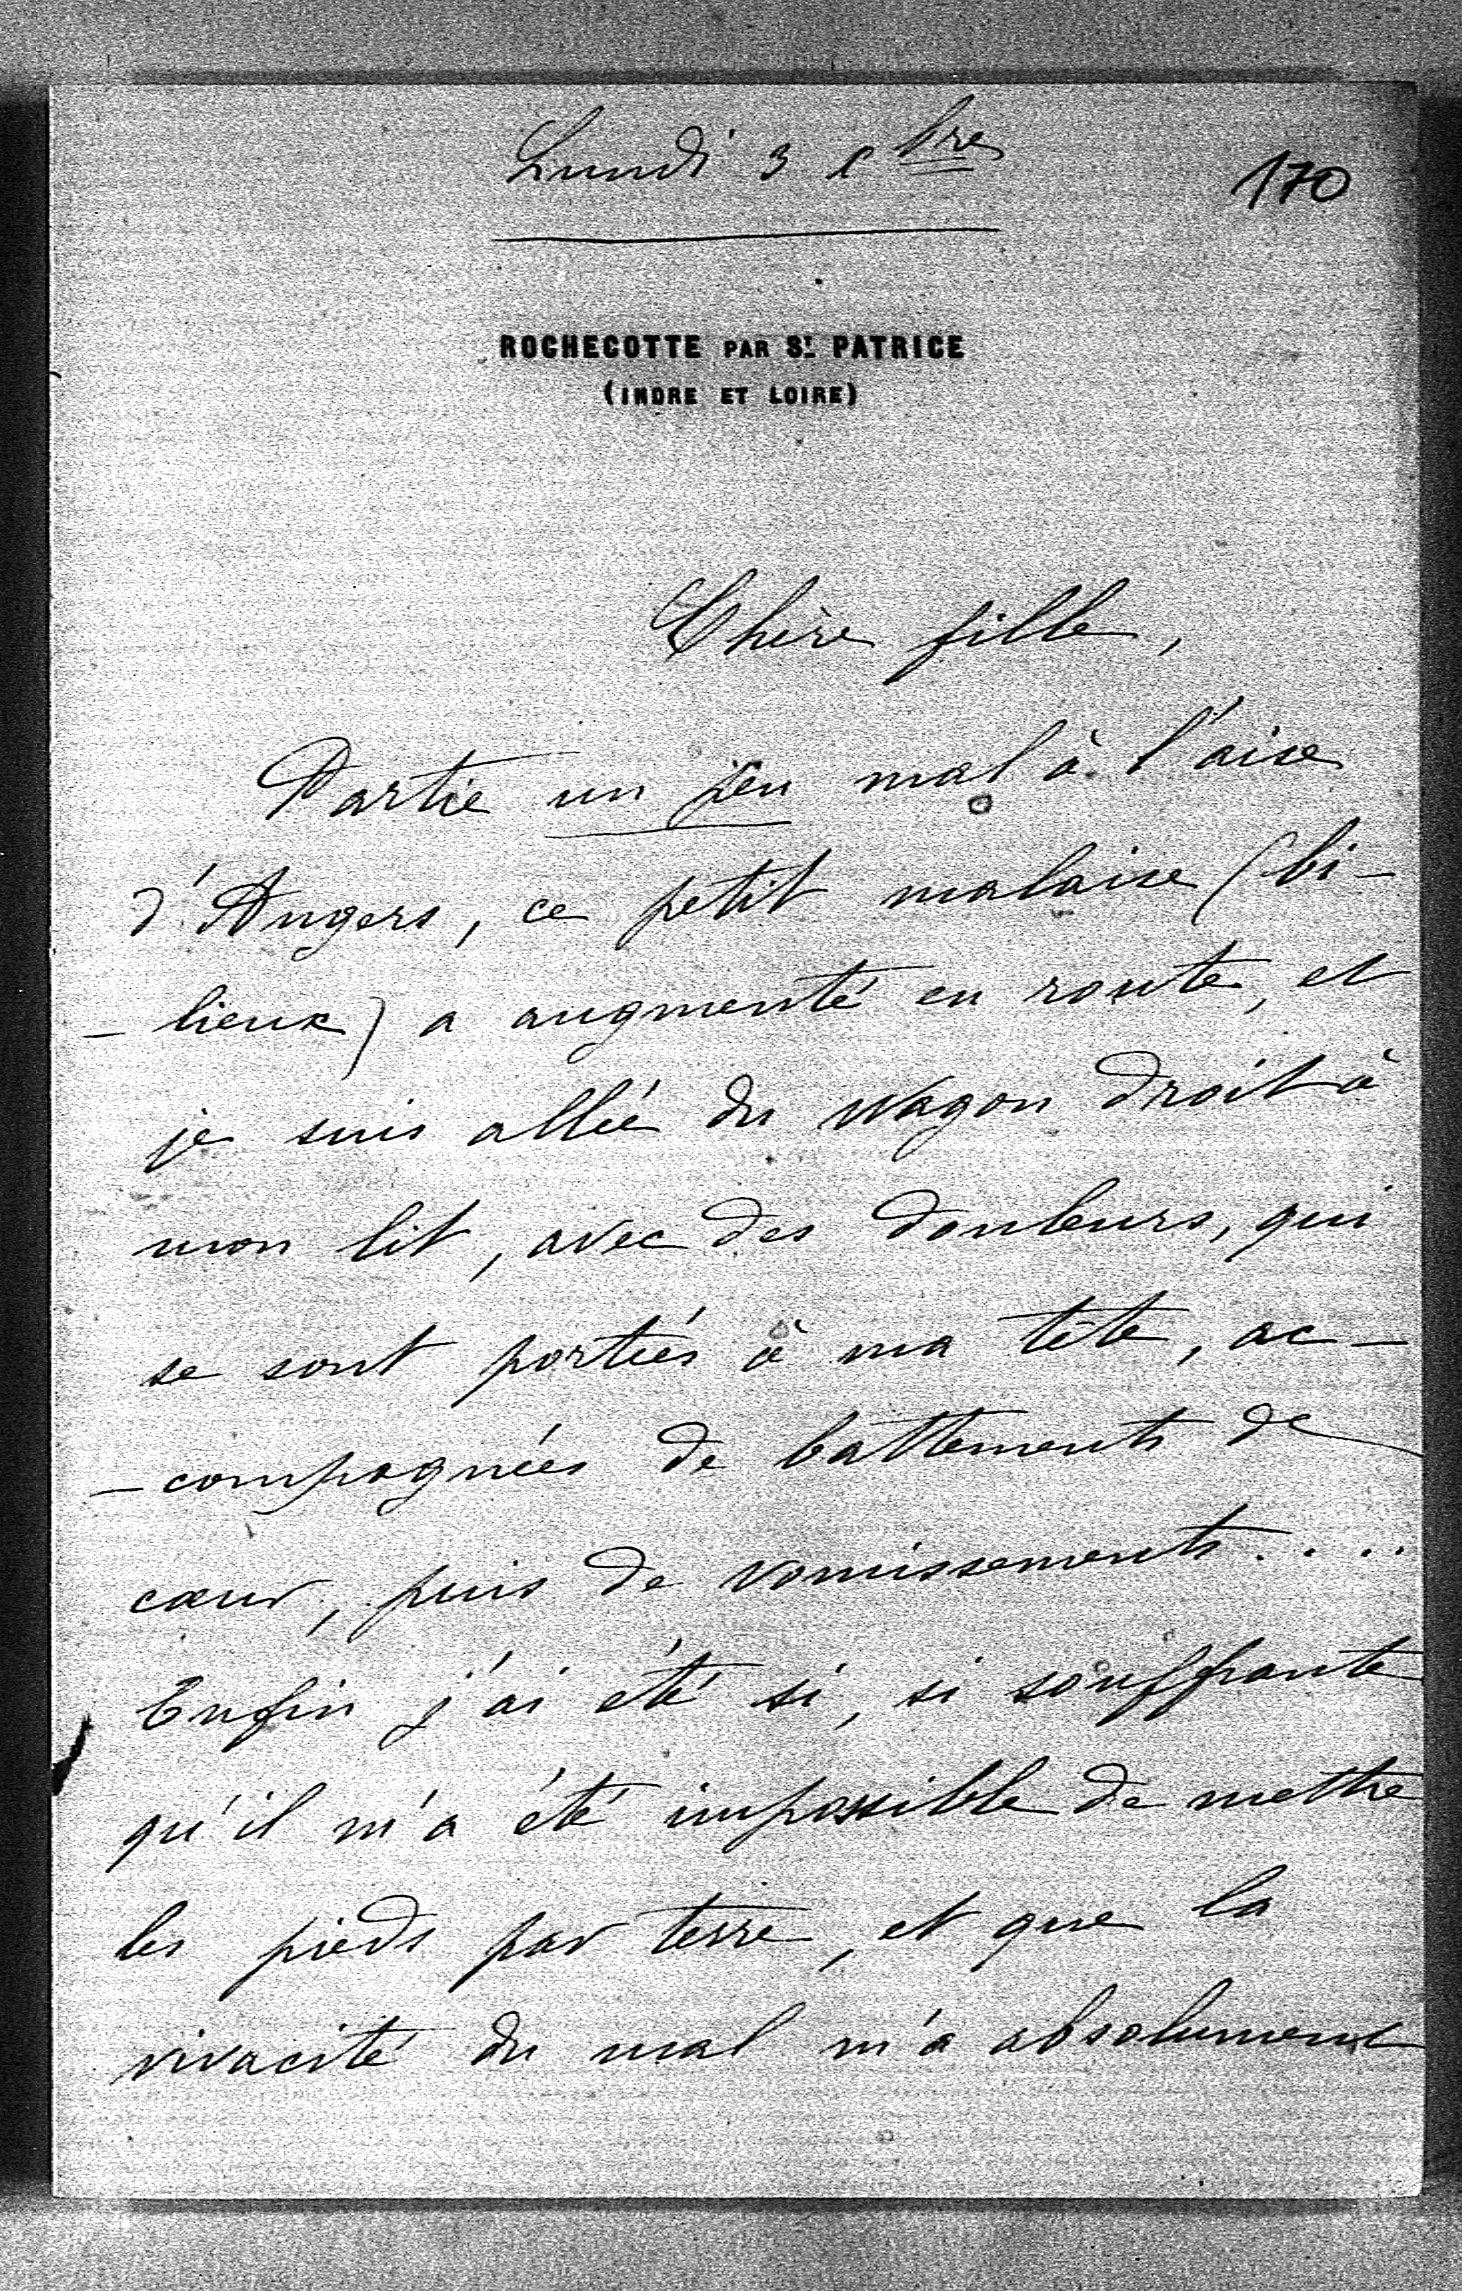 Lundi 3 Xbre
170
ROCHECOTTE PAR St. PATRICE
(INDRE ET LOIRE)
Chère fille,
Partie un peu mal à l'aise
d'Angers, ce petit malaise (bi-
-lieux) a augmenté en route, et
je suis allée du wagon droit à
mon lit, avec des douleurs, qui
se sont portées à ma tête, ac-
-compagnées de battements de
cœur, puis de vomissements....
Enfin j'ai été si, si souffrante
qu'il m'a été impossible de mettre
les pieds par terre, et que la
vivacité du mal m'a absolument